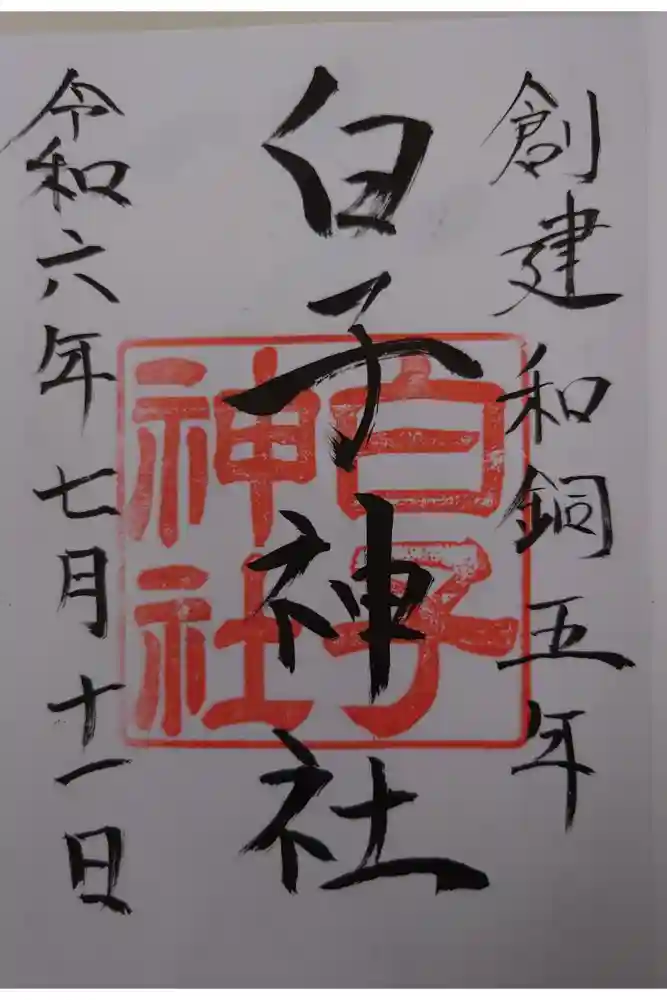 創建和銅五年
白子神社
白子神社
令和六年七月十一日